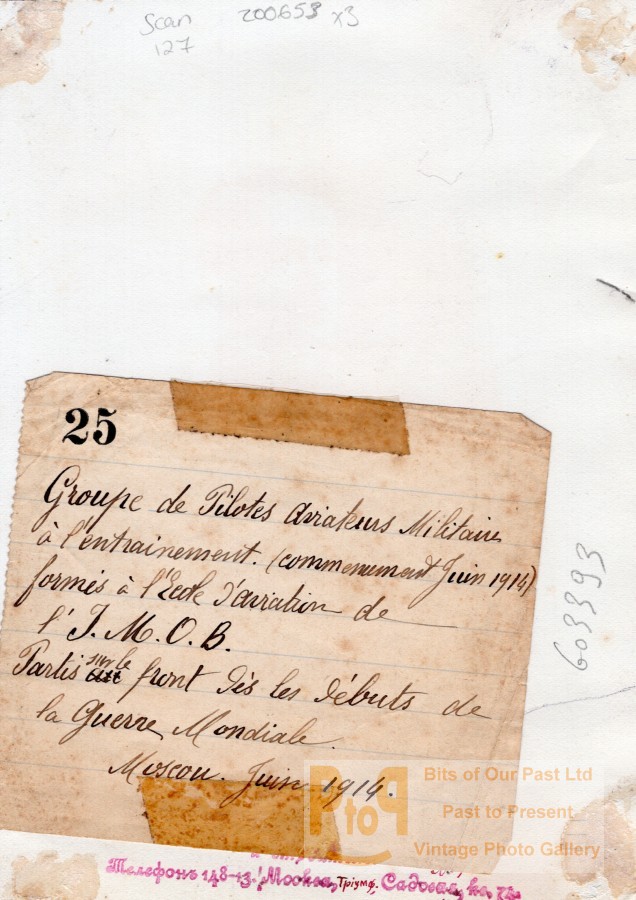 Scan 200653 x3
127
25
Groupe de Pilotes Aviateurs Militaire
à l'entrainement. (commencement Juin 1914)
formés à l'Ecole d'aviation de
l'I.M.O.B.
Partis sur le front dès les débuts de
la Guerre Mondiale.
Moscou. Juin 1914.
603393
PtoP
Bits of Our Past Ltd
Past to Present
Vintage Photo Gallery
Телефонъ 148-13. Москва, Тріумф. Садовая,